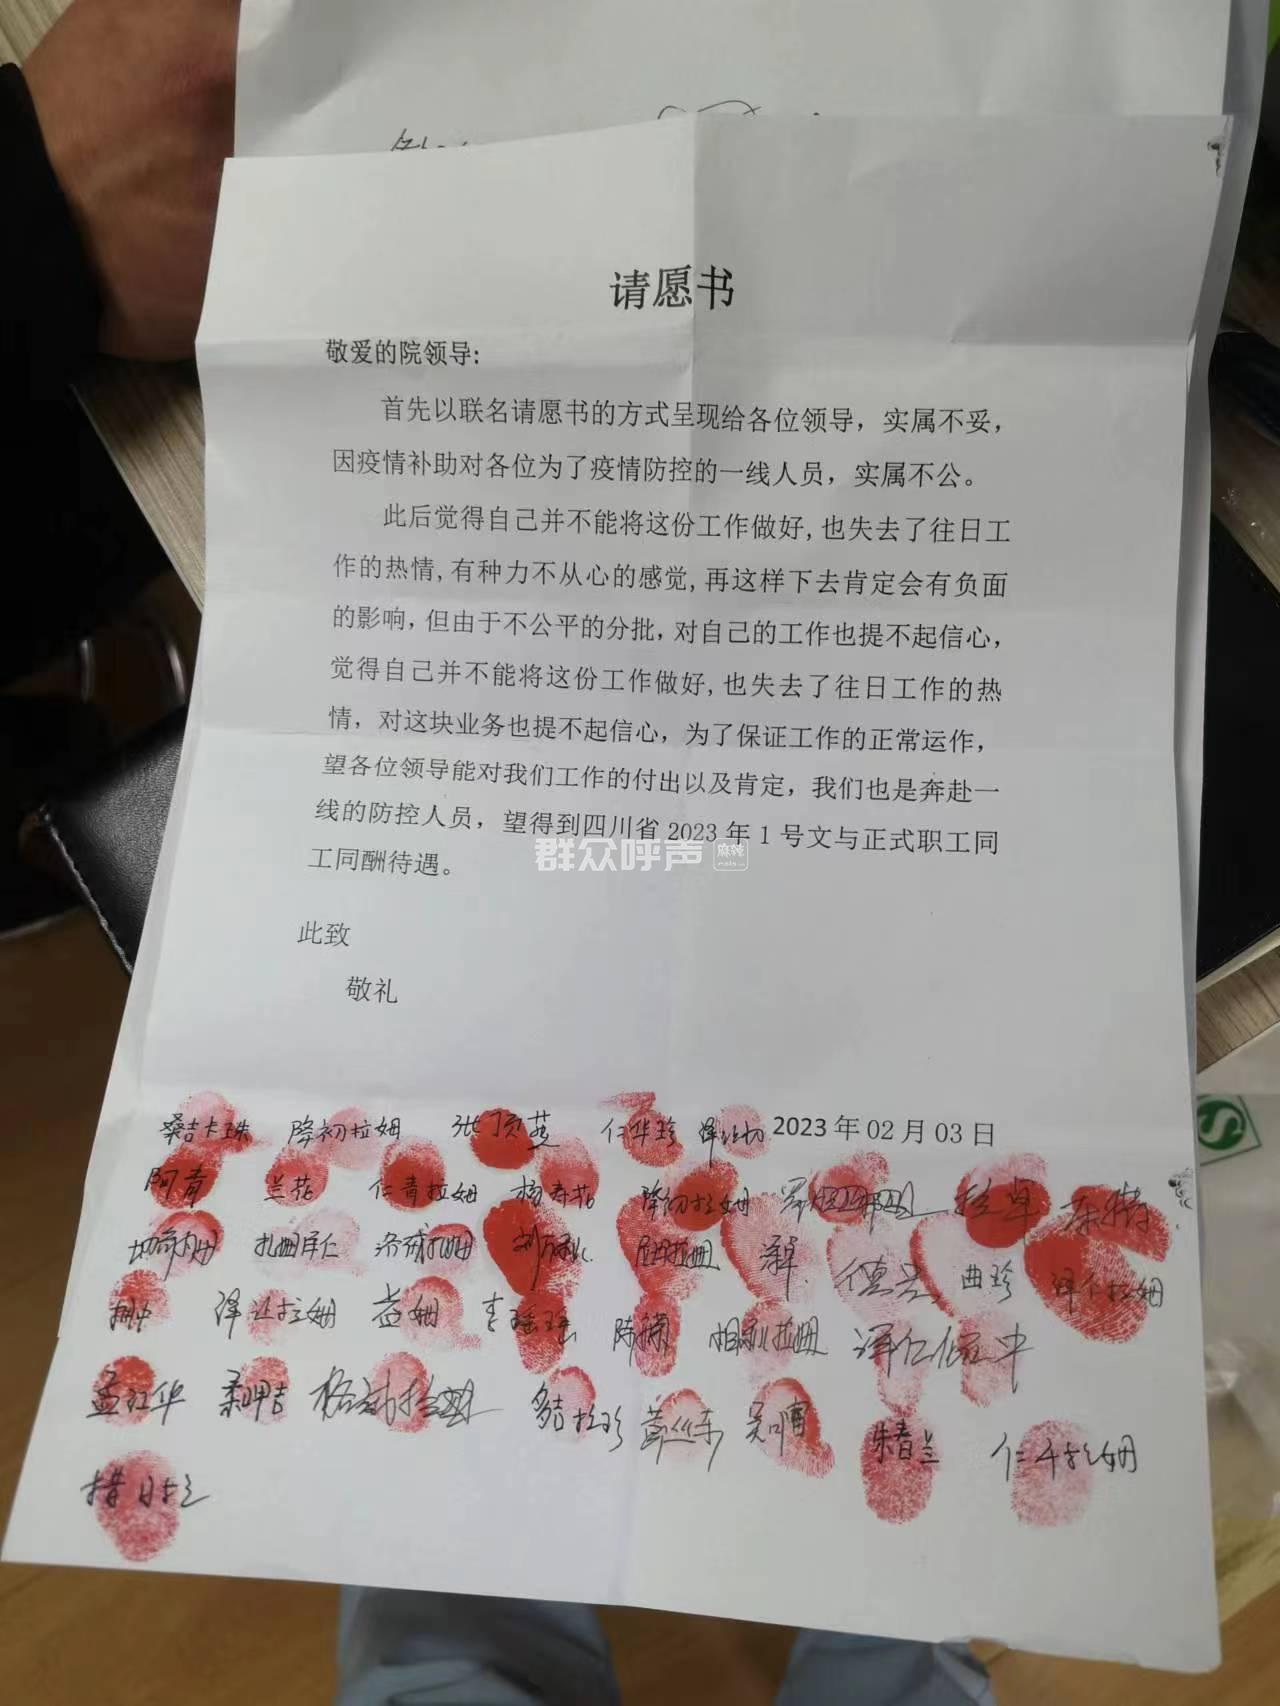 请愿书
敬爱的院领导:
首先以联名请愿书的方式呈现给各位领导，实属不妥，
因疫情补助对各位为了疫情防控的一线人员，实属不公。
此后觉得自己并不能将这份工作做好,也失去了往日工
作的热情,有种力不从心的感觉,再这样下去肯定会有负面
的影响，但由于不公平的分批，对自己的工作也提不起信心，
觉得自己并不能将这份工作做好,也失去了往日工作的热
情，对这块业务也提不起信心，为了保证工作的正常运作，
望各位领导能对我们工作的付出以及肯定，我们也是奔赴一
线的防控人员，望得到四川省 2023 年 1 号文与正式职工同
工同酬待遇。
群众呼声 麻辣
此致
敬礼
2023 年 02 月 03 日
桑吉卡珠 降初拉姆 张丁页燕 仁华珍
阿青 兰花 仁青拉姆 杨寿花 降初拉姆 拉卓
扎姆 德兰 曲珍 泽仁拉姆
泽让拉姆 益姆 李瑶瑶 陈 泽仁
孟红华 格 多吉拉珍 吴 朱春兰 仁